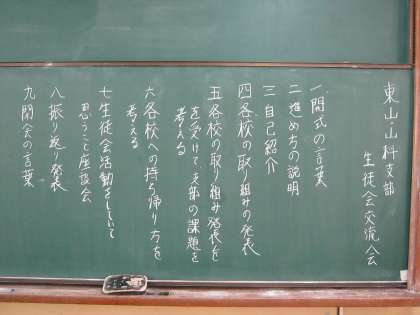 東山・山科支部
生徒会交流会
一開式の言葉
二進め方の説明
三自己紹介
四各校の取り組みの発表
五各校の取り組み発表を
を受けて支部の課題を
考える
六各校への持ち帰り方を
考える
七生徒会活動をしていて
思うこと座談会
八振り返り発表
九閉会の言葉